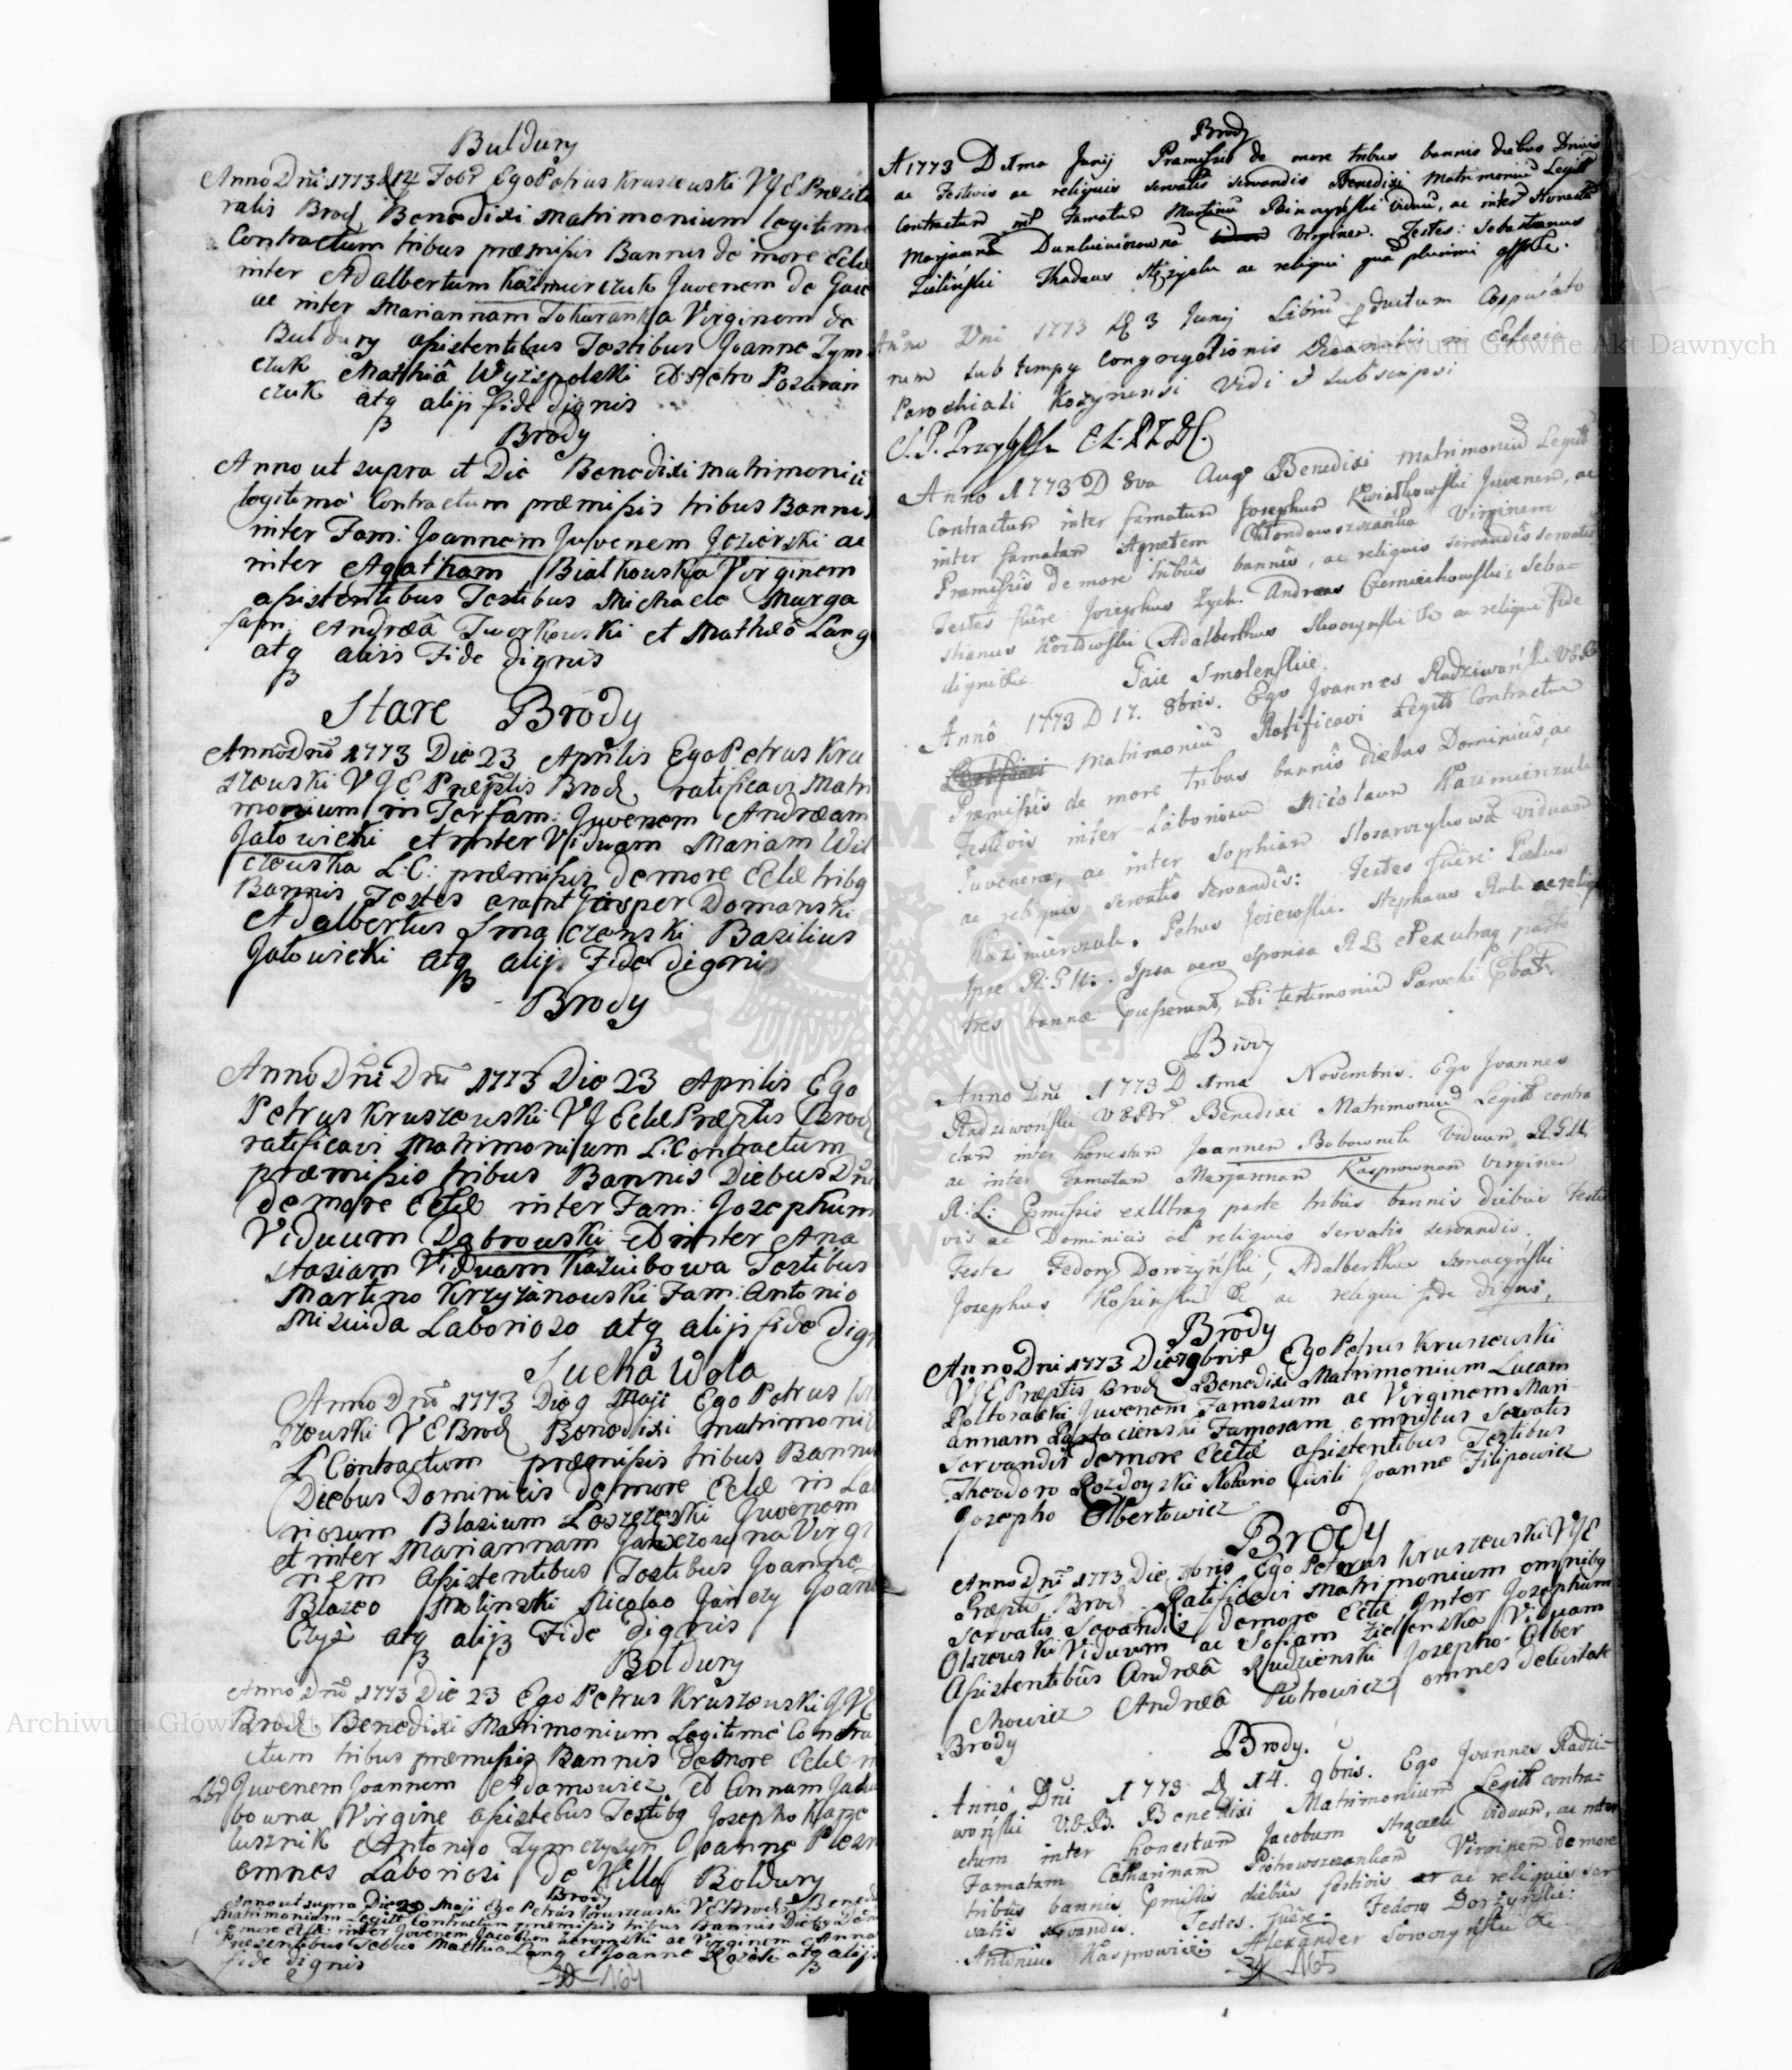 Buldury
Anno Dni 1773 D 14 Febr Ego Petrus Kruszewski VJE Præzita
ralis Brod. Benedixi Matrimonium legitime
Contractum tribus præmissis Bannis de more Eclæ
inter Adalbertum Kazimirczuk Juvenem de Gaie
ac inter Mariannam Tokaranka Virginem de
Buldury assistentibus Testibus Joanne Zym
czuk Mathiâ Wyzspolski et Petro Pozaran
czuk atq alijs fide dignis
Brody
Anno ut supra et Die Benedixi matrimoniu
legitime Contractum præmissis tribus Bannis
inter Fam: Joannem Juvenem Jezierski ac
inter Agatham Bialkowska Virginem
assistentibus Testibus Michaele Murga
fam: Andreâ Tworkowski et Mathæo Lang
atq aliis Fide dignis
Stare Brody
Anno Dni 1773 Die 23 Aprilis Ego Petrus Kru
szewski VJE Præptis Brod. ratificavi Matri
monium inter Fam: Juvenem Andræam
Jatowicki et inter Viduam Mariam Wil
czewska L.C: præmissis de more Eclæ tribq
Bannis Testes erant Gasper Domanski
Adalbertus Smaczenski Basilius
Jatowicki atq alijs Fide dignis
Brody
Anno Dni Dni 1773 Die 23 Aprilis Ego
Petrus Kruszewski VJ Eclæ Præptis Brod
ratificavi Matrimonium L: Contractum
præmissis tribus Bannis Diebus Dni
de more Eclæ inter Fam: Josephum
Viduum Dabrowski et inter Ana
stasiam Viduam Kaziubowa Testibus
Martino Krzyżanowski Fam: Antonio
Misiuida Laborioso atq alijs fide dig
Sucha Wola
Anno Dni 1773 Die 9 Maji Ego Petrus Kr
szewski VE Brod Benedixi matrimoniu
L Contractum præmissis tribus Bannis
Diebus Dominicis de more Eclæ in La
riosum Blasium Leszczeski Juvenem
et inter Mariannam Janczoszyna Virgi
nem assistentibus Testibus Joanne
Blazeo Molinski Nicolao Janczy Joann
Czyż atq alijs Fide dignis
Boldury
Anno Dni 1773 Die 23 Ego Petrus Kruszewski JVE
Brod. Benedixi Matrimonium Legitime Contra
ctum tribus præmissis Bannis de more Eclæ
Lbr Juvenem Joannem Adamowicz et Annam Jaku
bowna Virgine assistebus Testibq Josepho Klapo
lusznik Antonio Zymczyszyn Joanne Plesn
omnes Laboriosi de Villa Boldury
Brody
Anno ut supra Die 29 Maji Ego Petrus Kruszewski VE Brod. Bene
Matrimonium Legitt Contractum præmissis tribus Bannis Diebq Dom
de more Eclæ inter Juvenem Jacobum Zeromski ac Virginem Anna
Præsentibus Testibus Matthia Lang et Joanne Kozak atq alijs
fide dignis
164
Brody
A 1773 D 1ma Junij Præmissis de more tribus bannis diebus Dnicis
ac Festivis ac reliquis servatis servandis Benedixi Matrimoniu Legitt
Contractum int Famatum Martinu viduu, ac inter Honestã
Marjannã Virginem. Testes: Sebastianus
Zieliński Thadeus ac reliqui quã plurimi
Anno Dni 1773 D 3 Junij Librũ pductum Copulato
rum sub tempq Congregationis Decanalis in Eclesia
Parochiali Kozynensi vidi et subscripsi
Anno 1773 D 8va Augi Benedixi Matrimoniu Legitt
Contractum inter famatum Josephum Kwiatkowski Juvenem, ac
inter famatam Agnetem Virginem
Præmissis de more tribûs bannis, ac reliquis servandis servatis
Testes fuêre Josephus Zych. Andreas Czerniechowski, Seba=
stianus Kozłowski Adalberthus Skoczynski &c ac reliqui fide
digni &c.
Gaie Smolenskie.
Annô 1773 D 17. 8bris. Ego Joannes Radziwoński VEB
Matrimoniu Ratificavi Legitt Contractum
Præmissis de more tribus bannis diebus Dominicis, ac
Festivis inter Laboriosum Nicolaum Kazimierczuk
Juvenem, ac inter Sophiam Slosarczykowã viduam
ac reliquis servatis servandis: Testes fuêre: Paulus
Kazimierczuk. Petrus Jeziewski. Stephanus Rub ac reliq
Ipse R:G:U:. Ipsa vero sponsa R L et ex utraq parte
tres bannæ præsserunt, ubi testimoniu Parochi
Brody
Anno Dni 1773 D 1ma Novembris. Ego Joannes
Radziwoński VEBr Benedixi Matrimoniu Legitt contra
ctum inter honestum Joannem Bobownik viduum RGU
ac inter famatam Marjannam Kaspownam virginem
R:L: pmissis ex Utraq parte tribus bannis diebus Festi
vis ac Dominicis ac reliquis servatis servandis.
Testes Fedory Dorożyński, Adalberthus
Josephus Kosinski &c ac reliqui fide digni.
Brody
Anno Dni 1773 Die 7 9bris Ego Petrus Kruszewski
VJE Præptis Brod Benedixi Matrimonium Lucam
Poltoracki Juvenem Famosum ac Virginem Mari-
annam Famosam omnibus servatis
servandis de more Eclæ assistentibus Testibus
Theodoro Rozdoyski Notario Civili Joanne Filipowicz
Josepho Olbertowicz
Brody
Anno Dni 1773 Die 9bris Ego Petrus Kruszewski VJE
Præptis Brod. Ratificavi Matrimonium omnibq
servatis sevandis de more Eclæ inter Josephum
Olszewski Viduum ac Sofiam Zielenska Viduam
Assistentibus Andræâ Rudzienski Josepho Olber
chowicz Andræâ Piotrowicz omnes de Civitate
Brody
Brody.
Annô Dni 1773 D 14. 9bris. Ego Joannes Radzi=
woński V.E.B. Benedixi Matrimonium Legitt contra=
ctum inter honestum Jacobum Strączek viduum, ac inter
Famatam Catharinam Piotrowszczankam Virginem de more
tribus bannis pmissis diebus festivis ac reliquis ser
vatis servandis. Testes. fuêre. Fedory Dorzyński:
Antonius Kasprowicz Alexander Sowoczyński &c
165
Archiwum Główne Akt Dawnych
Archiwum Główne Akt Dawnych